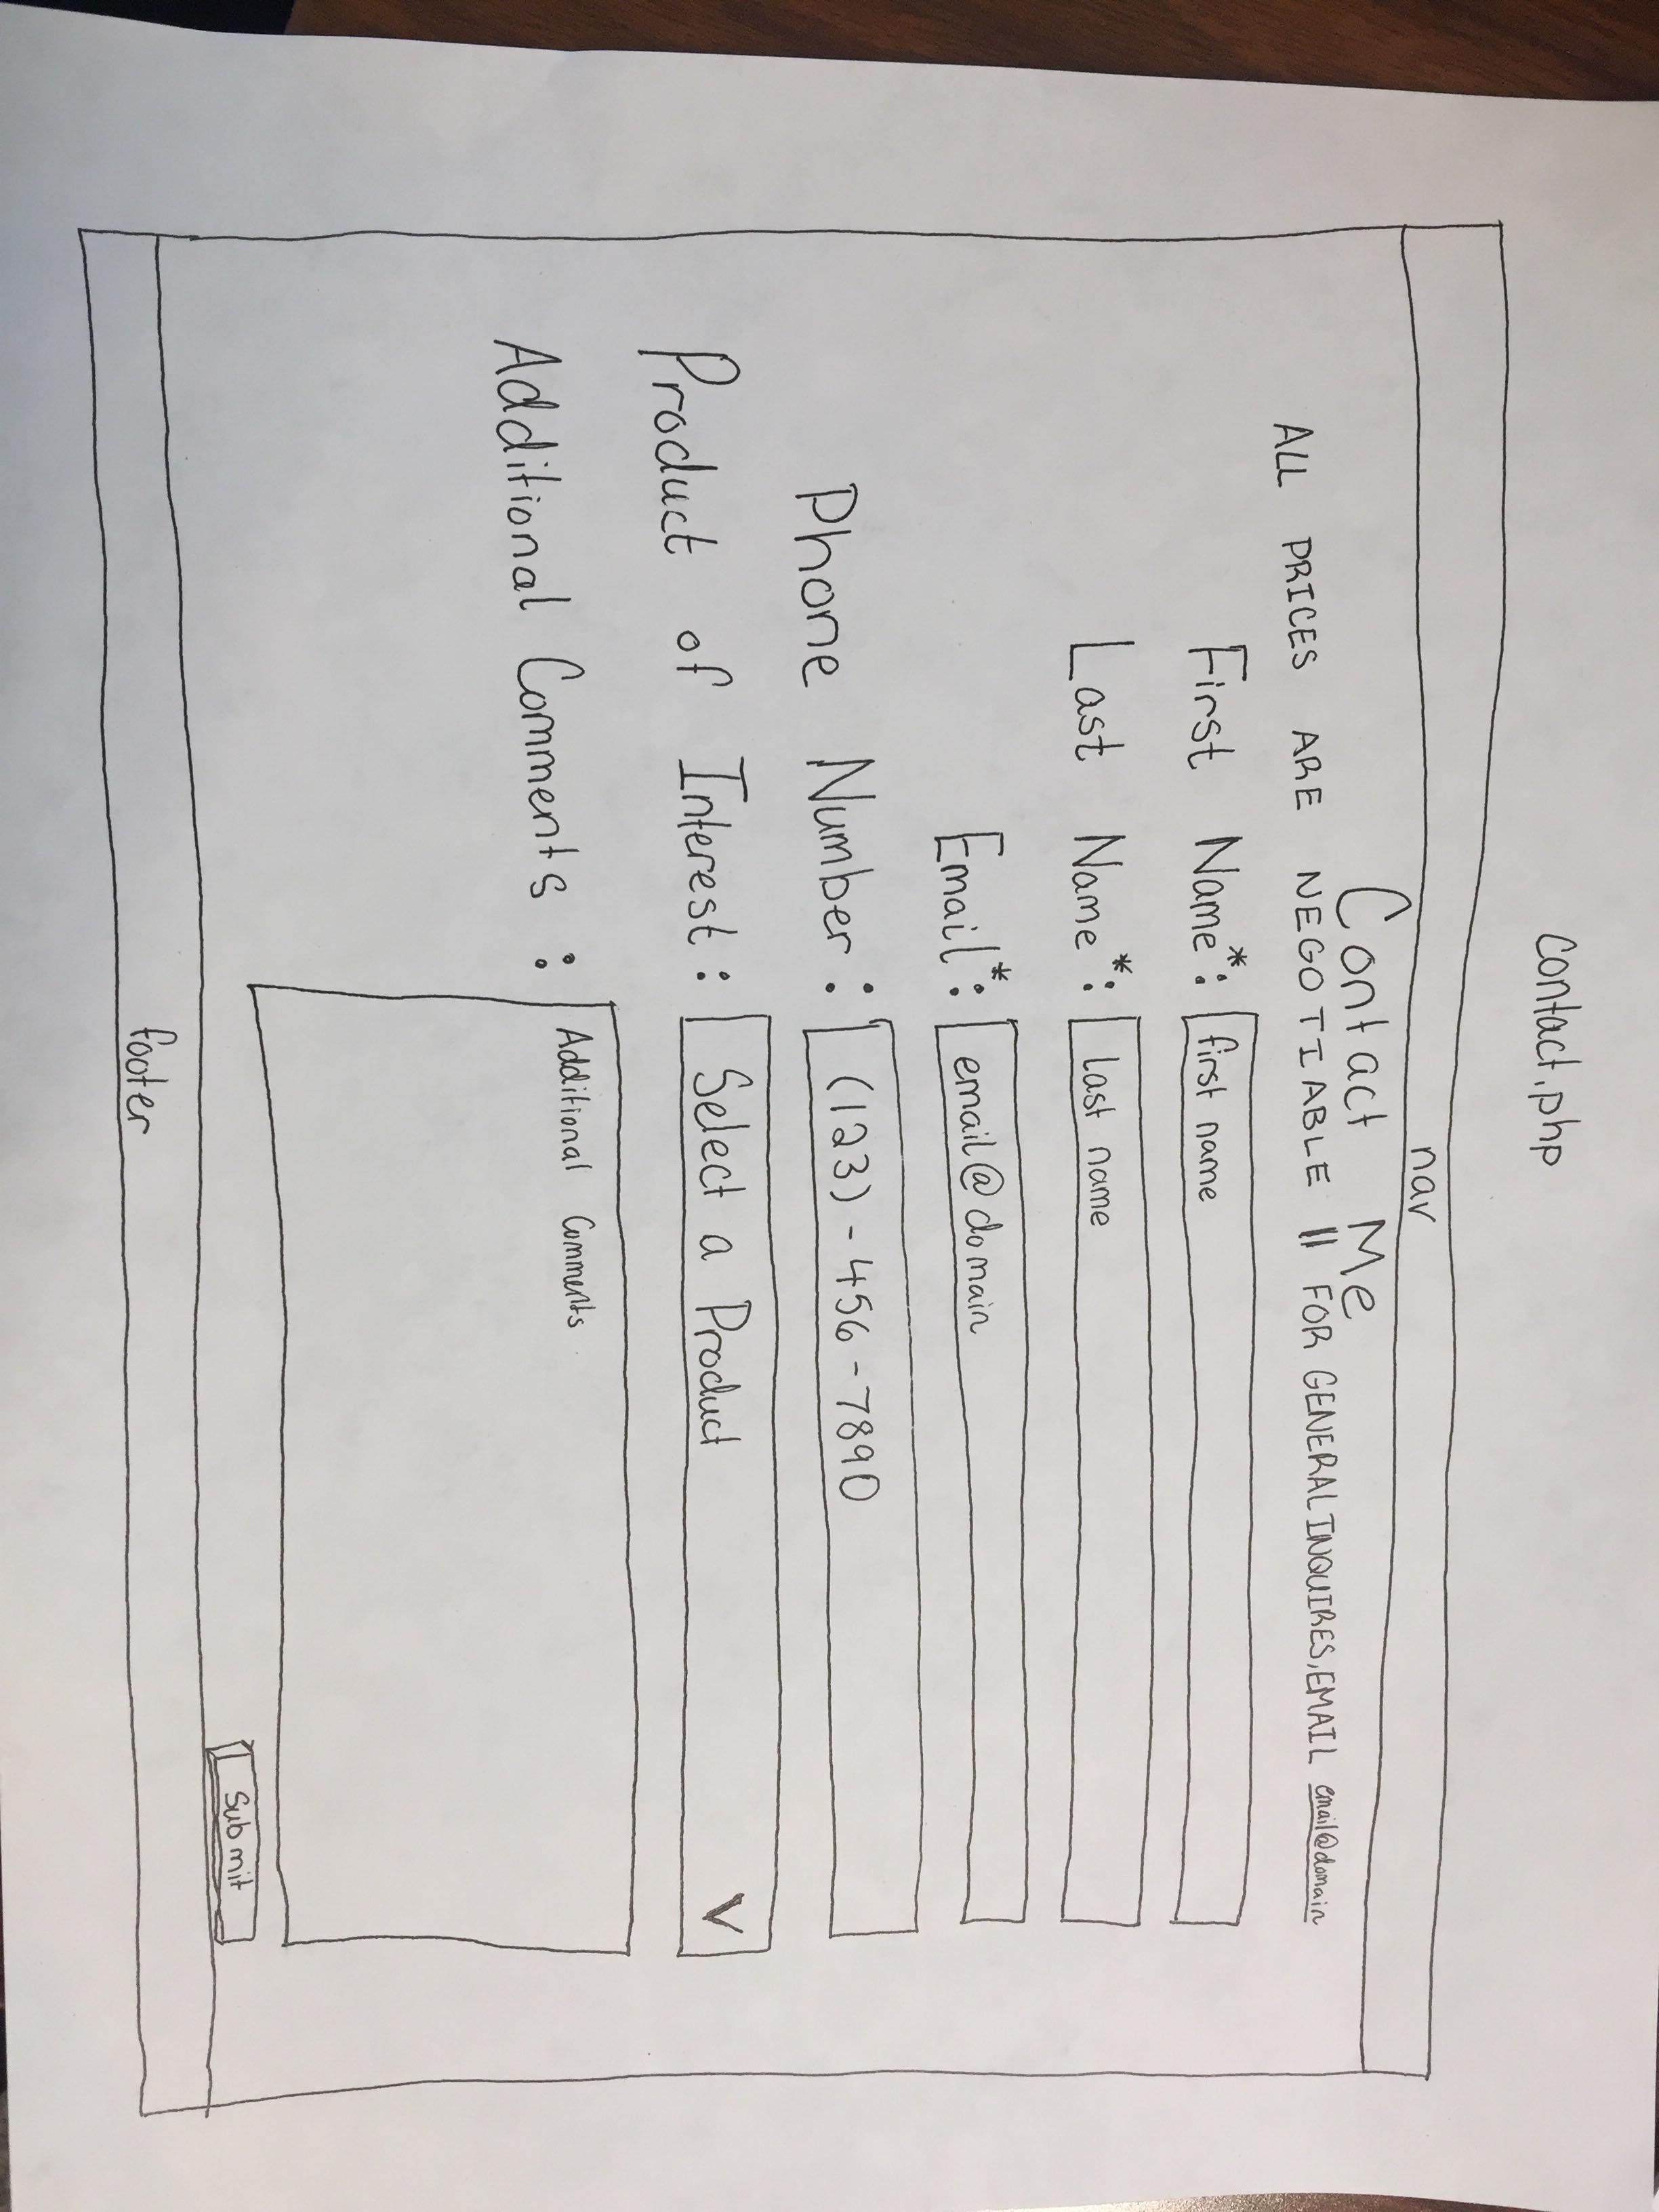 Contact.php
nav
Contact Me
ALL PRICES ARE NEGOTIABLE || FOR GENERAL INQUIRES, EMAIL email@domain
First Name*: first name
Last Name*: last name
Email*: email@domain
Phone Number: (123)-456-7890
Product of Interest: Select a Product V
Additional Comments: Additional Comments
Submit
footer